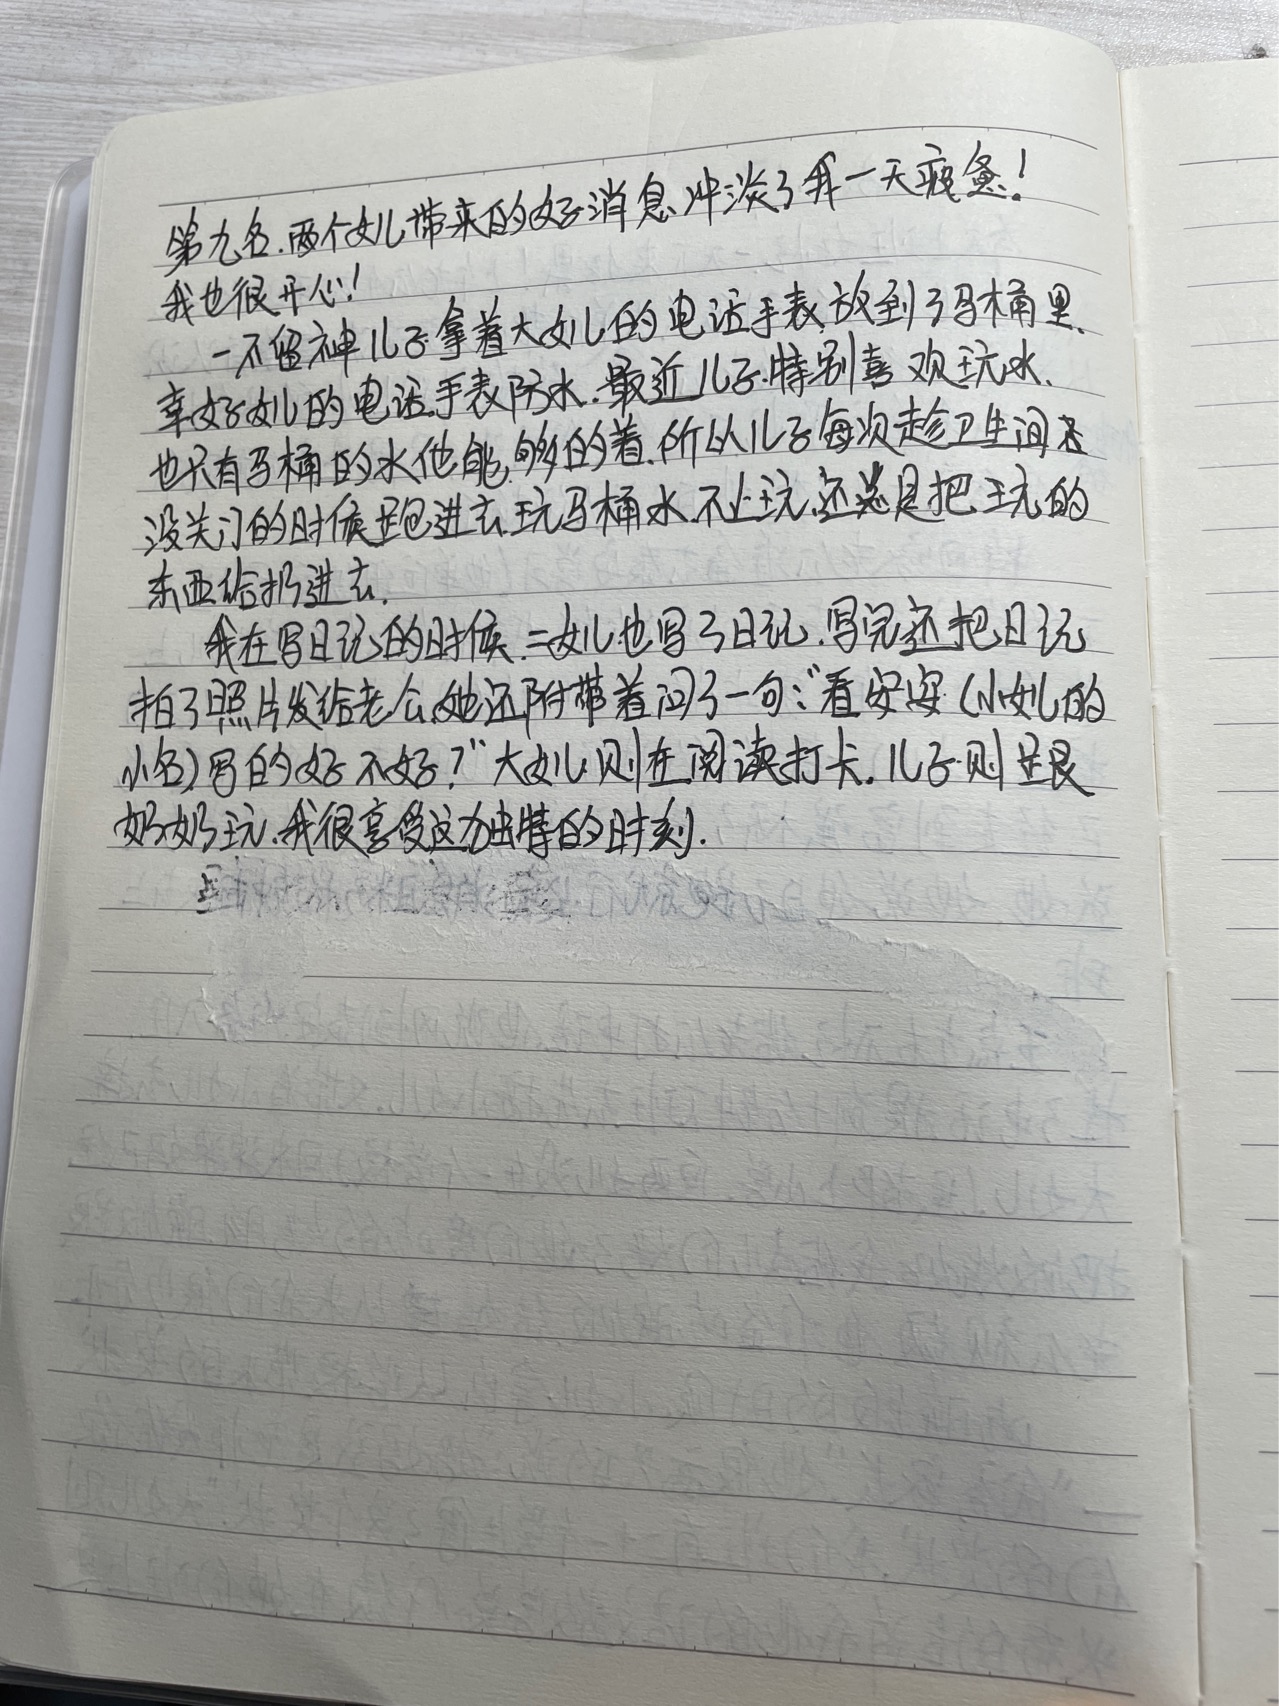 第九名.两个女儿带来的好消息冲淡了我一天疲惫！
我也很开心！
一不留神儿子拿着大女儿的电话手表放到了马桶里.
幸好女儿的电话手表防水.最近儿子特别喜欢玩水.
也只有马桶的水他能够的着.所以儿子每次趁卫生间
没关门的时候跑进去玩马桶水.不止玩.还总是把玩的
东西给扔进去.
我在写日记的时候.二女儿也写了日记.写完还把日记
拍了照片发给老公.她还附带着问了一句:"看安安(小女儿的
小名)写的好不好?"大女儿则在阅读打卡.儿子则是跟
奶奶玩.我很享受这为独特的时刻.